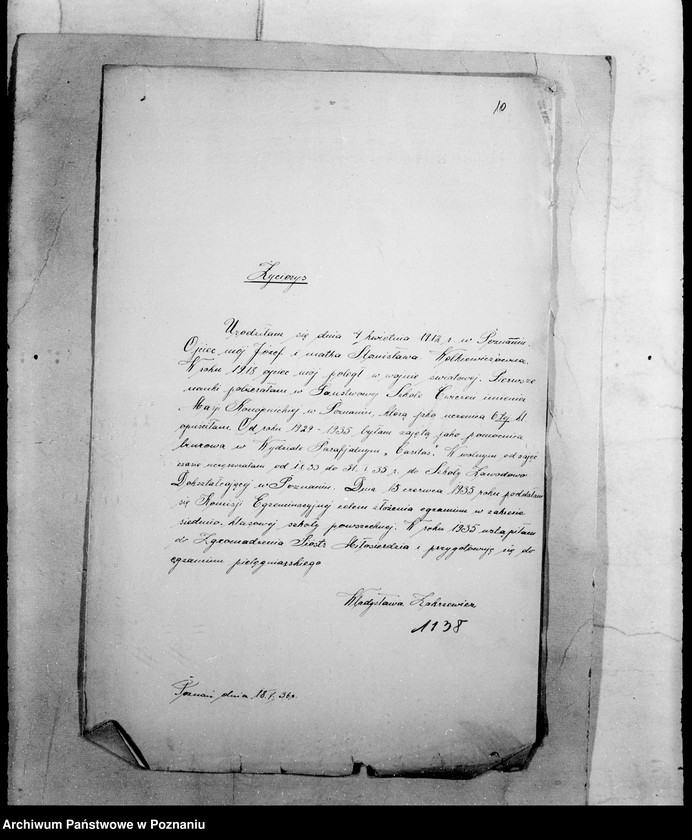 10
Życiorys
Urodziłam się dnia 4 kwietnia 1912 r. w Poznaniu.
Ojciec mój Józef i matka Stanisława
W roku 1918 ojciec mój poległ w wojnie światowej. Pierwsze
nauki pobierałam w Państwowej Szkole Ćwiczeń imienia
Marji Konopnickiej w Poznaniu, którą jako uczenica 6-tej kl.
opuściłam. Od roku 1929-1935 byłam zajętą jako pomocnica
biurowa w Wydziale Parafjalnym „Caritas". W wolnym od zajęć
czasie uczęszczałam od 1.I.33 do 31.I.35 r. do Szkoły Zawodowo
Dokształcającej w Poznaniu. Dnia 15 czerwca 1935 roku poddałam
się Komisji Egzaminacyjnej celem złożenia egzaminu w zakresie
siedmio-klasowej szkoły powszechnej. W roku 1935 wstąpiłam
do Zgromadzenia Sióstr Miłosierdzia i przygotowuję się do
egzaminu pielęgniarskiego
Władysława Zakrzewicz
1138
Poznań, dnia 18./I. 36 r.
Archiwum Państwowe w Poznaniu